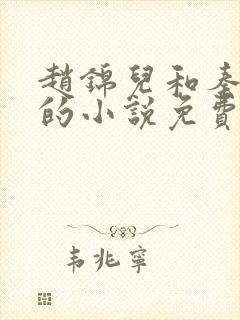 趙錦兒和秦
的小說免費
韦兆寧